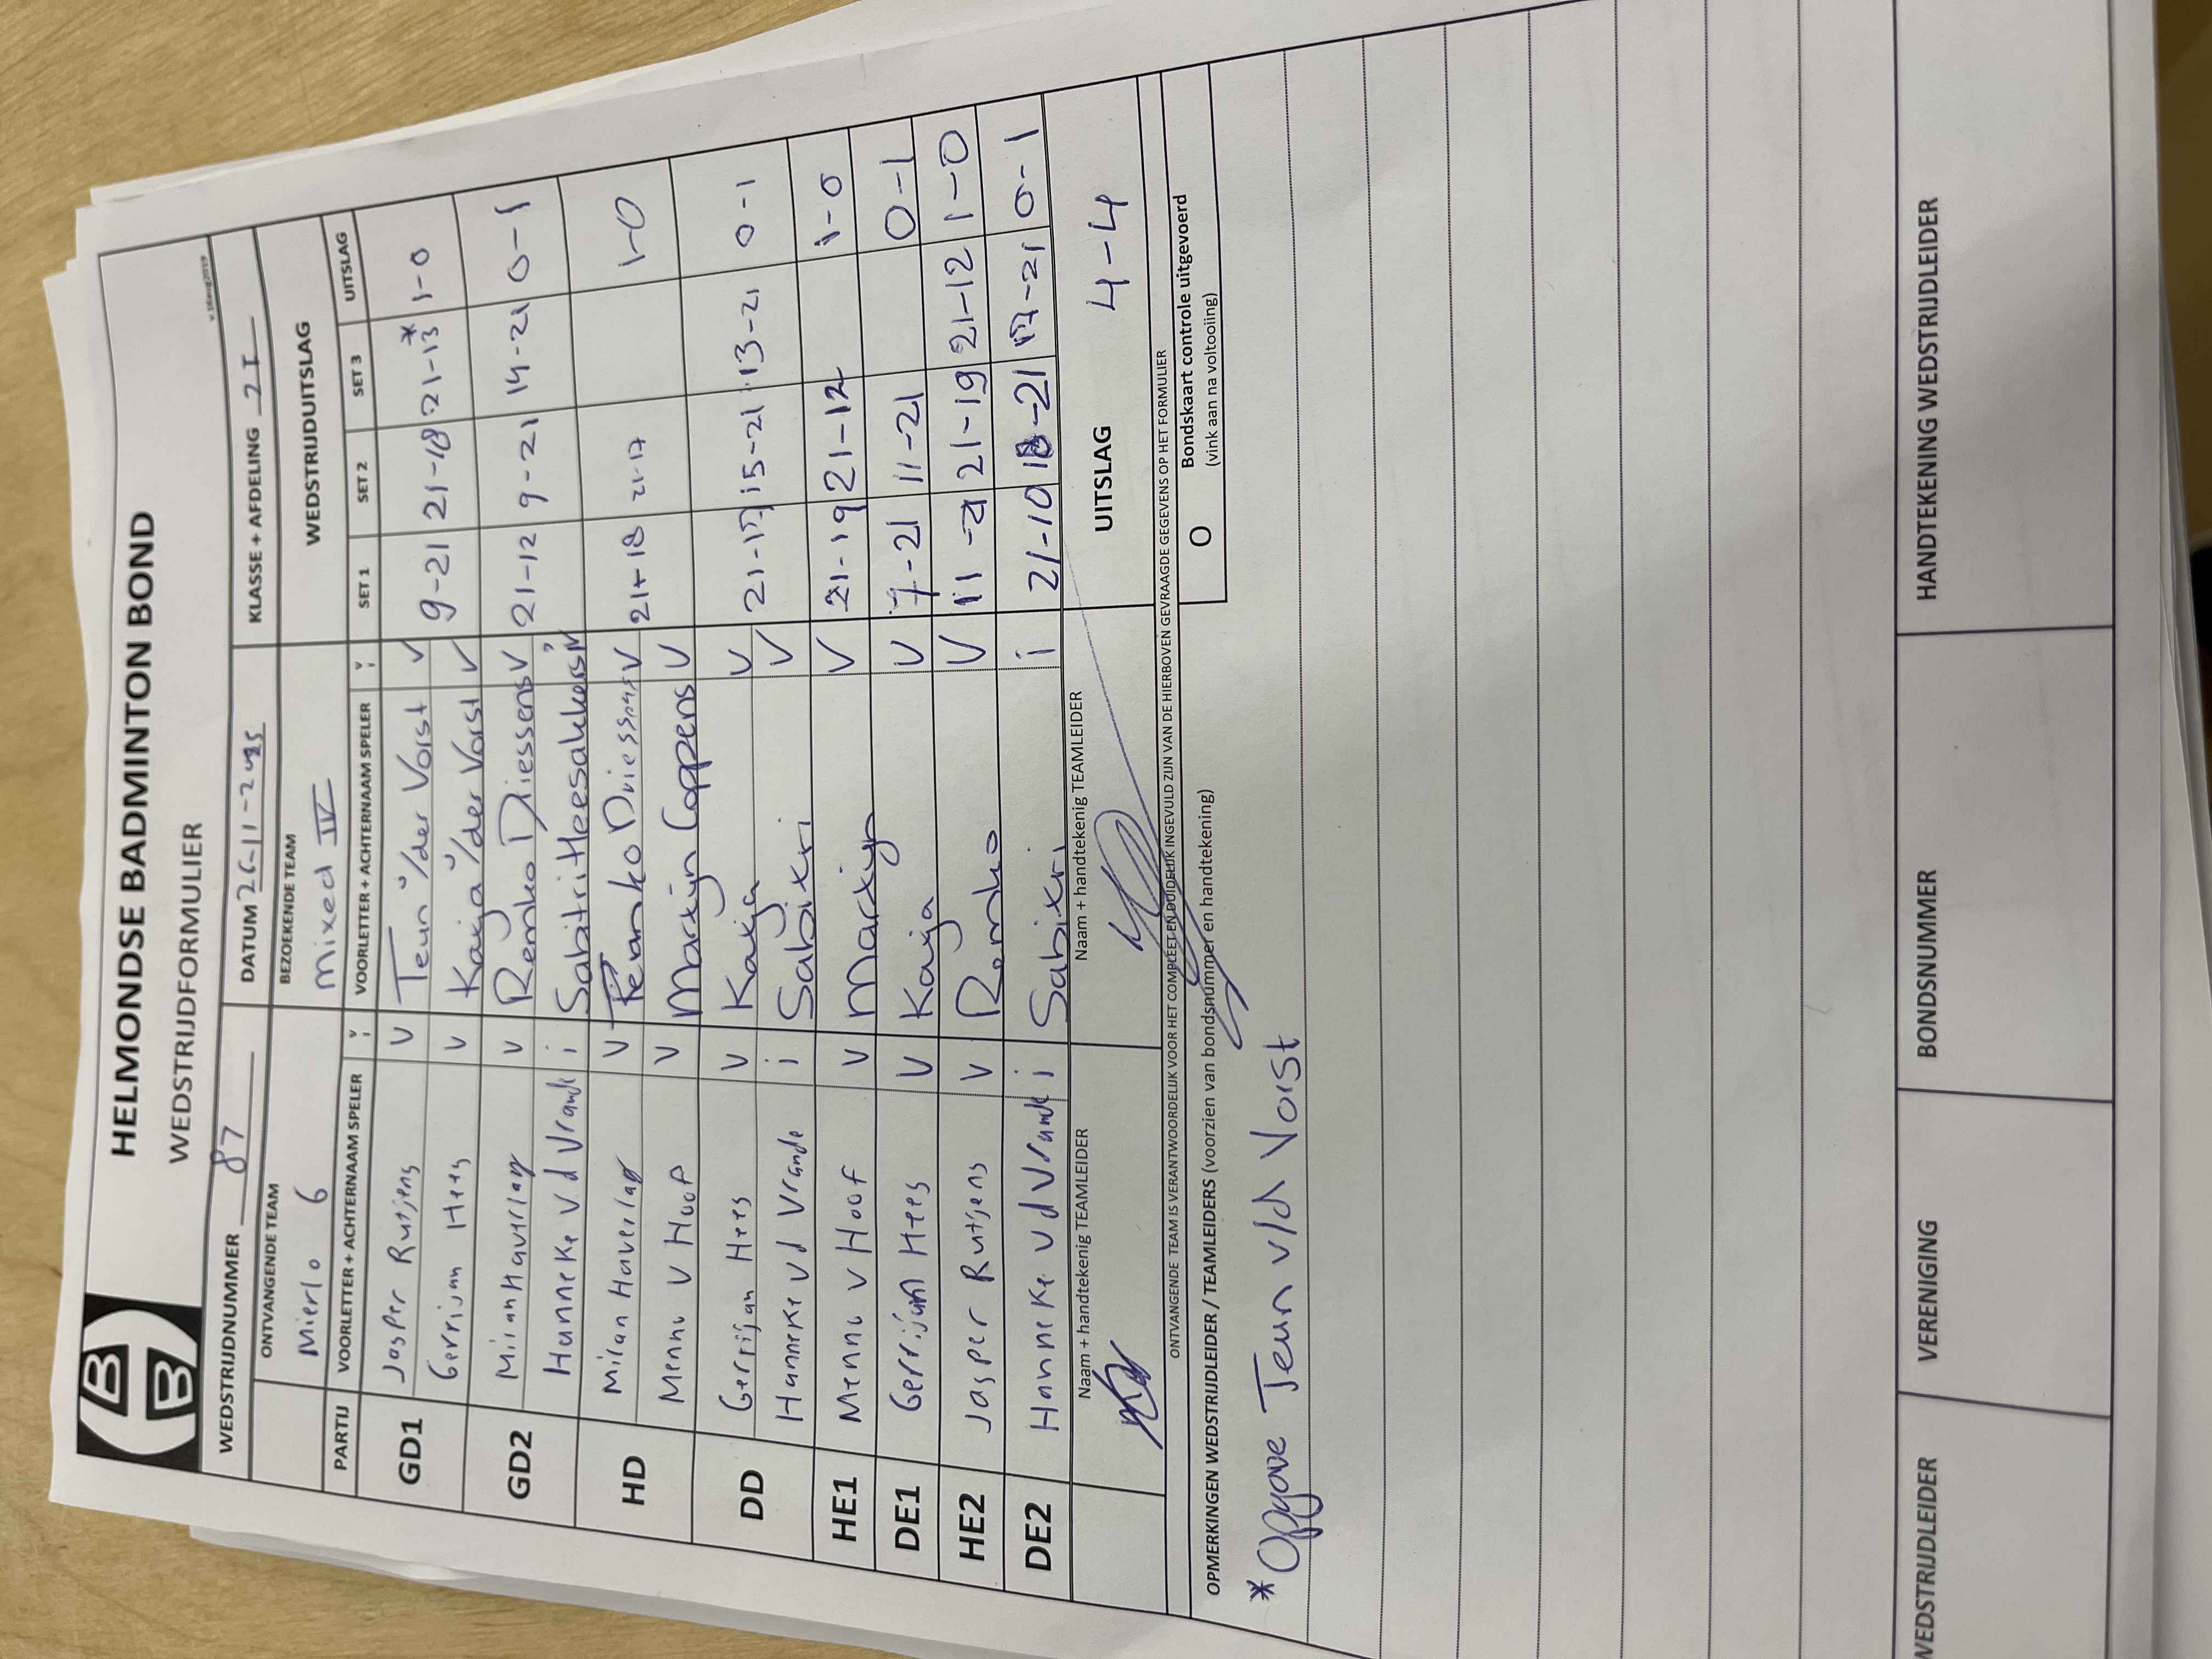 HELMONDSE BADMINTON BOND
WEDSTRIJDFORMULIER
v.16aug2019
WEDSTRIJDNUMMER 87 DATUM 26-11-2025 KLASSE + AFDELING 2I
ONTVANGENDE TEAM BEZOEKENDE TEAM WEDSTRIJDUITSLAG
Mierlo 6 mixed IV
PARTIJ VOORLETTER + ACHTERNAAM SPELER VOORLETTER + ACHTERNAAM SPELER SET 1 SET 2 SET 3 UITSLAG
GD1 Jasper Rutjens V Teun v/der Vorst V 9-21 21-18 21-13* 1-0
Gerrijan Hees V Katja v/der Vorst V
GD2 Milan Haverlag V Remko Driessens V 21-12 9-21 14-21 0-1
Hanneke vd Vrande i Sabitri Heesakkers
HD Milan Haverlag V Remko Driessens V 21-18 21-17 1-0
Menno v Hoof V Martijn Coppens V
DD Gerrijan Hees V Katja V 21-17 15-21 13-21 0-1
Hanneke vd Vrande i Sabitri V
HE1 Menno v Hoof V Martijn V 21-19 21-12 1-0
DE1 Gerrijan Hees V Katja V 7-21 11-21 0-1
HE2 Jasper Rutjens V Remko V 11-21 21-19 21-12 1-0
DE2 Hanneke vd Vrande i Sabitri i 21-10 18-21 17-21 0-1
Naam + handtekenig TEAMLEIDER Naam + handtekenig TEAMLEIDER UITSLAG 4-4
ONTVANGENDE TEAM IS VERANTWOORDELIJK VOOR HET COMPLEET EN DUIDELIJK INGEVULD ZIJN VAN DE HIERBOVEN GEVRAAGDE GEGEVENS OP HET FORMULIER
OPMERKINGEN WEDSTRIJDLEIDER / TEAMLEIDERS (voorzien van bondsnummer en handtekening) O Bondskaart controle uitgevoerd
(vink aan na voltooiing)
* Opgave Teun v/d Vorst
WEDSTRIJDLEIDER VERENIGING BONDSNUMMER HANDTEKENING WEDSTRIJDLEIDER